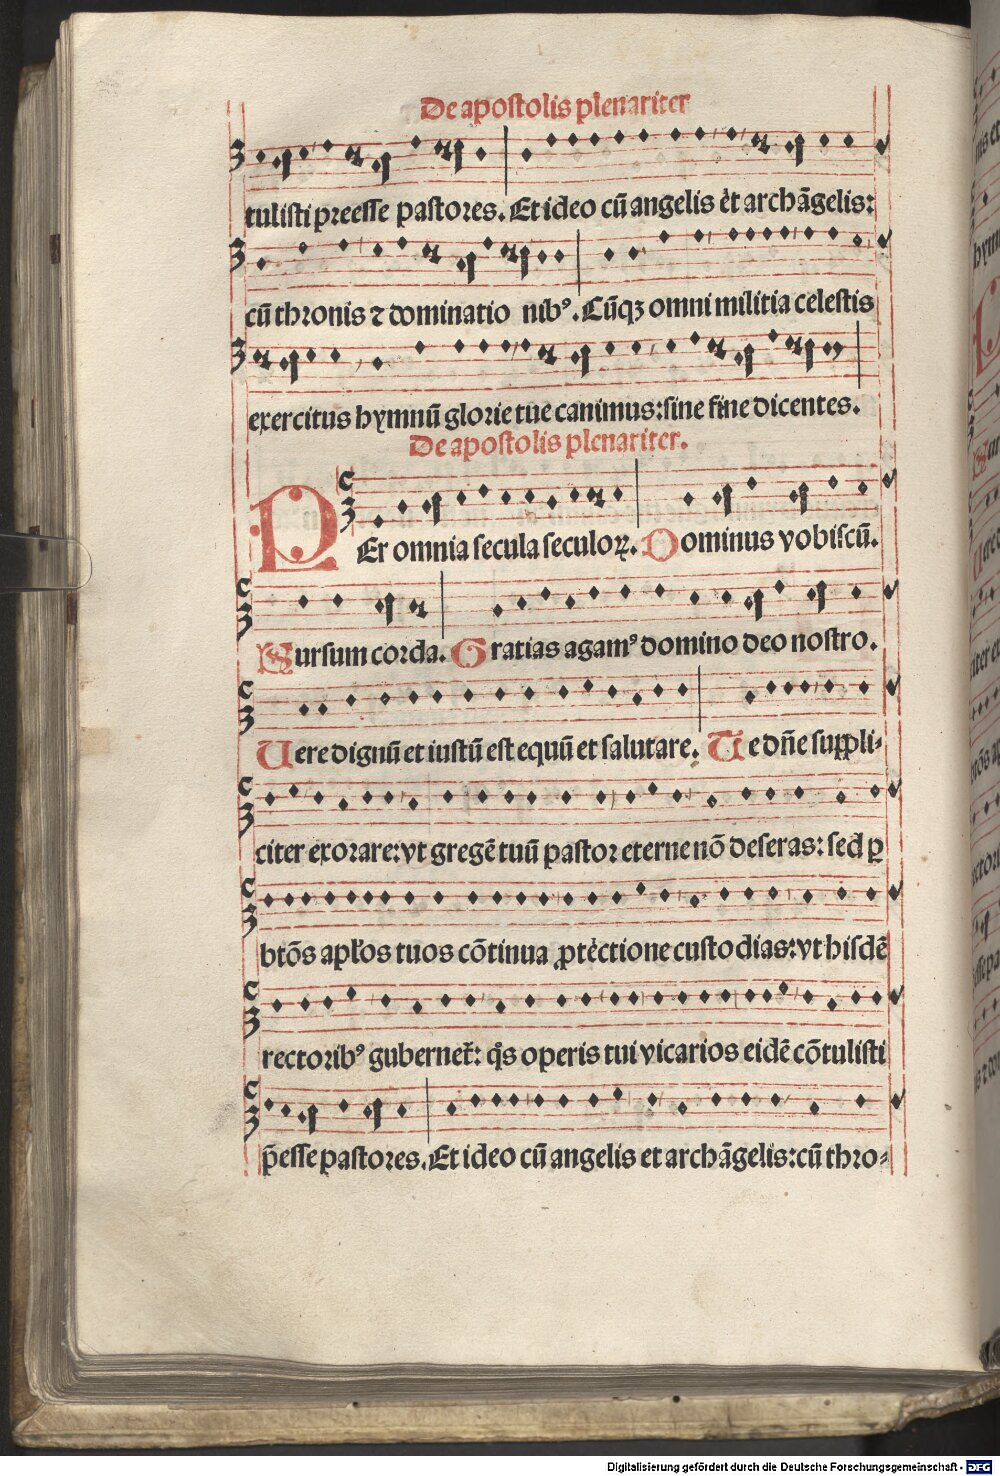 De apostolis plenariter
tulisti preesse pastores. Et ideo cū angelis et archāgelis:
cū thronis ⁊ dominatio nibꝰ. Cūqꝫ omni militia celestis
exercitus hymnū glorie tue canimus: sine fine dicentes.
De apostolis plenariter.
PEr omnia secula seculoꝝ. Dominus vobiscū.
Sursum corda. Gratias agamꝰ domino deo nostro.
Uere dignū et iustū est equū et salutare. Te dn̄e suppli⸗
citer exorare: vt gregē tuū pastor eterne nō deseras: sed ꝑ
btōs apłos tuos cōtinua ꝓtectione custodias: vt hisdē
rectoribꝰ gubernet̄: qͥs operis tui vicarios eidē cōtulisti
p̄esse pastores. Et ideo cū angelis et archāgelis: cū thro⸗
Digitalisierung gefördert durch die Deutsche Forschungsgemeinschaft - DFG